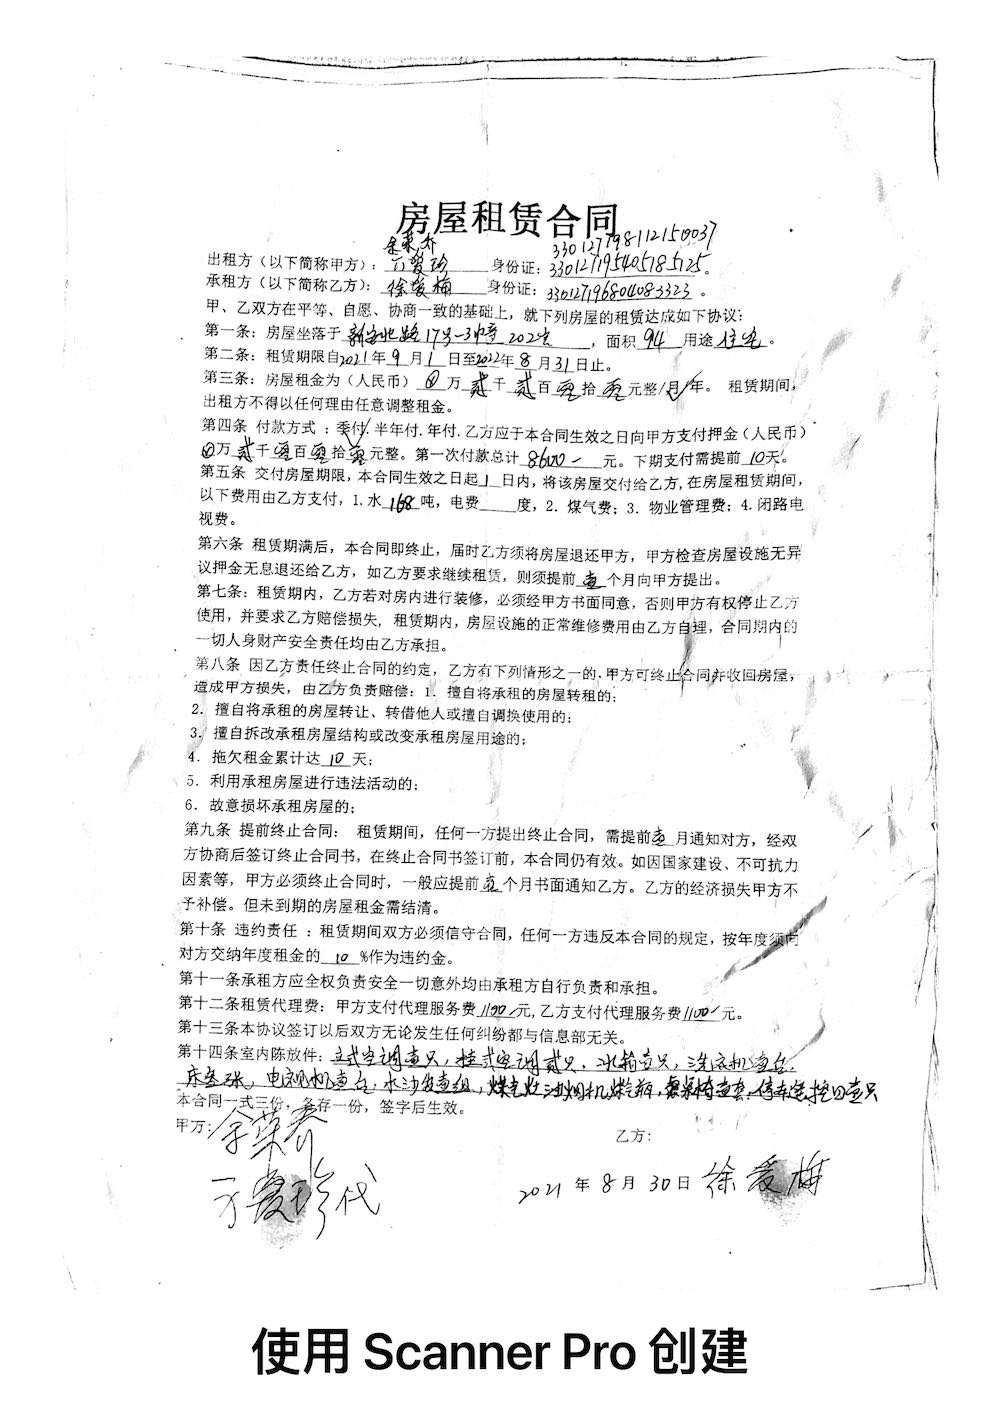 房屋租赁合同
余荣乔 330127798112150037
出租方（以下简称甲方）：方爱珍 身份证：330127195405185125。
承租方（以下简称乙方）：徐爱梅 身份证：330127196804083323。
甲、乙双方在平等、自愿、协商一致的基础上，就下列房屋的租赁达成如下协议：
第一条：房屋坐落于 新安北路17号-3 202室，面积 94 用途 住宅。
第二条：租赁期限自2021年9月1日至2022年8月31日止。
第三条：房屋租金为（人民币）⊘万贰千贰百零拾零元整/月/年。 租赁期间，
出租方不得以任何理由任意调整租金。
第四条 付款方式 ：季付.半年付.年付.乙方应于本合同生效之日向甲方支付押金（人民币）
⊘万贰千零百零拾零元整。第一次付款总计 8600- 元。下期支付需提前 10天。
第五条 交付房屋期限，本合同生效之日起1日内，将该房屋交付给乙方,在房屋租赁期间，
以下费用由乙方支付，1.水 168 吨，电费____度，2. 煤气费；3. 物业管理费；4.闭路电
视费。
第六条 租赁期满后，本合同即终止，届时乙方须将房屋退还甲方，甲方检查房屋设施无异
议押金无息退还给乙方，如乙方要求继续租赁，则须提前 壹 个月向甲方提出。
第七条：租赁期内，乙方若对房内进行装修，必须经甲方书面同意，否则甲方有权停止乙方
使用，并要求乙方赔偿损失, 租赁期内，房屋设施的正常维修费用由乙方自理，合同期内的
一切人身财产安全责任均由乙方承担。
第八条 因乙方责任终止合同的约定，乙方有下列情形之一的,甲方可终止合同并收回房屋，
造成甲方损失，由乙方负责赔偿：1. 擅自将承租的房屋转租的；
2. 擅自将承租的房屋转让、转借他人或擅自调换使用的；
3. 擅自拆改承租房屋结构或改变承租房屋用途的；
4. 拖欠租金累计达 10 天；
5. 利用承租房屋进行违法活动的；
6. 故意损坏承租房屋的；
第九条 提前终止合同： 租赁期间，任何一方提出终止合同，需提前壹月通知对方，经双
方协商后签订终止合同书，在终止合同书签订前，本合同仍有效。如因国家建设、不可抗力
因素等，甲方必须终止合同时，一般应提前壹个月书面通知乙方。乙方的经济损失甲方不
予补偿。但未到期的房屋租金需结清。
第十条 违约责任 ：租赁期间双方必须信守合同，任何一方违反本合同的规定，按年度须向
对方交纳年度租金的 10 %作为违约金。
第十一条承租方应全权负责安全一切意外均由承租方自行负责和承担。
第十二条租赁代理费：甲方支付代理服务费1100元,乙方支付代理服务费1100元。
第十三条本协议签订以后双方无论发生任何纠纷都与信息部无关。
第十四条室内陈放件：立式空调壹只，挂式空调贰只，冰箱壹只，洗衣机壹台，
床叁张，电视机壹台，木沙发壹组，煤气灶油烟机煤气瓶，
本合同一式三份，各存一份，签字后生效。
甲方：余荣乔 乙方：
方爱珍代 2021年8月30日 徐爱梅
使用 Scanner Pro 创建